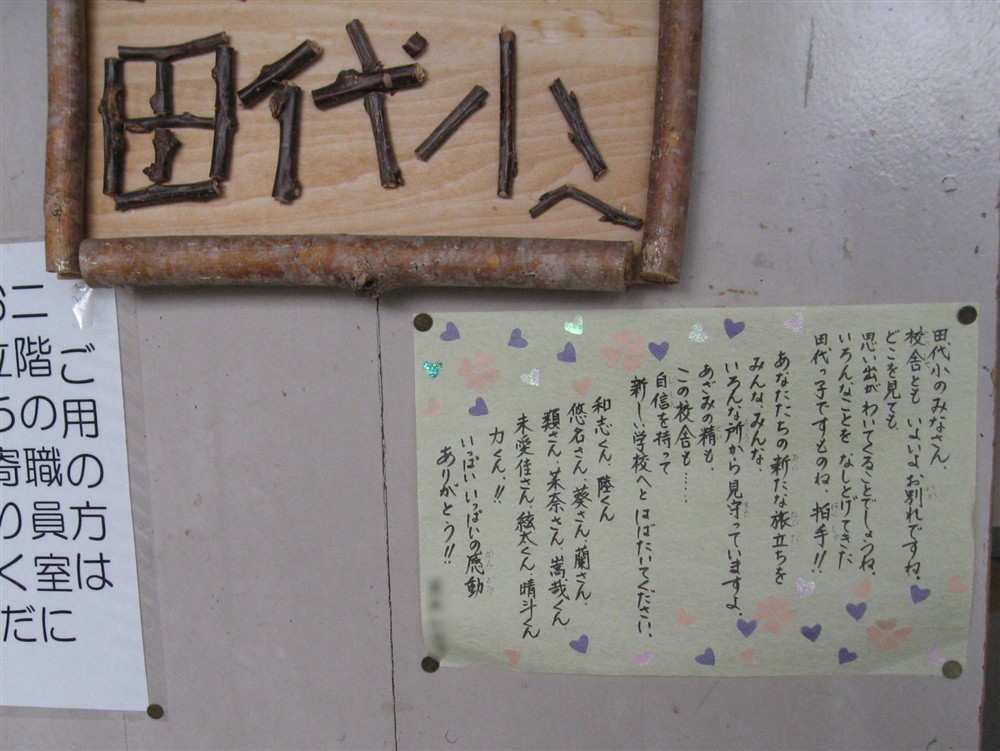 田代小へ
田代小のみなさん、
校舎とも いよいよ お別れですね。
どこを見ても
思い出が わいてくることでしょうね。
いろんなことを なしとげてきた
田代っ子ですものね、拍手!!
あなたたちの 新たな 旅立ちを
みんな、みんな、
いろんな所から 見守っていますよ。
あざみの精も、
この校舎も……
自信を持って
新しい学校へと はばたいてください。
和志くん、陸くん
悠名さん、葵さん、蘭さん、
類さん、茉奈さん、嵩哉くん、
未愛佳さん、絃太くん、晴斗くん
力くん、!!
いっぱい いっぱいの感動
ありがとう!!
ご用の方は
二階の職員室に
お立ち寄りください